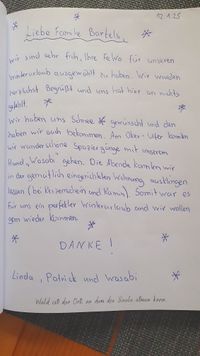 12.1.25
Liebe Familie Bartels,
wir sind sehr froh, Ihre FeWo für unseren
Winterurlaub ausgewählt zu haben. Wir wurden
herzlichst Begrüßt und uns hat hier an nichts
gefehlt.
Wir haben uns Schnee gewünscht und den
haben wir auch bekommen. Am Oker-Ufer konnten
wir wunderschöne Spaziergänge mit unserem
Hund, "Wasabi" gehen. Die Abende konnten wir
in der gemütlich eingerichteten Wohnung ausklingen
lassen (bei Kerzenschein und Kamin). Somit war es
für uns ein perfekter Winterurlaub und wir wollen
gern wieder kommen.
DANKE!
Linda, Patrick und Wasabi
Wald ist der Ort, an dem die Seele atmen kann.